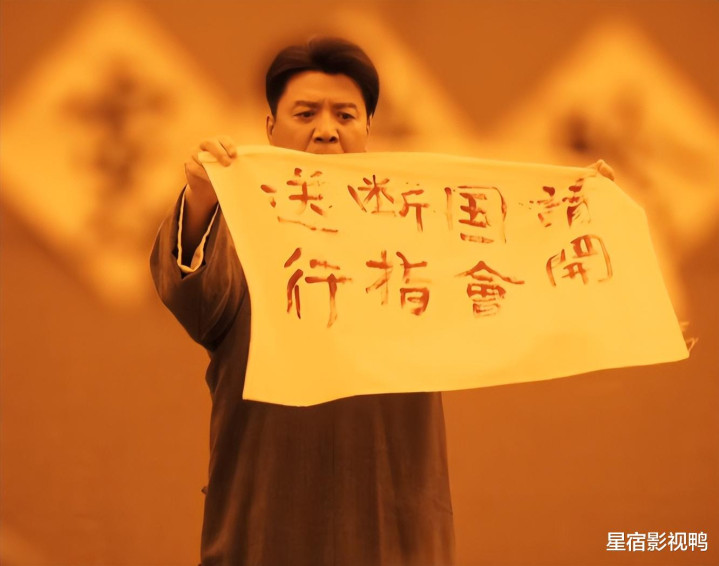 請開
国會
断指
送行
星宿影视鸭